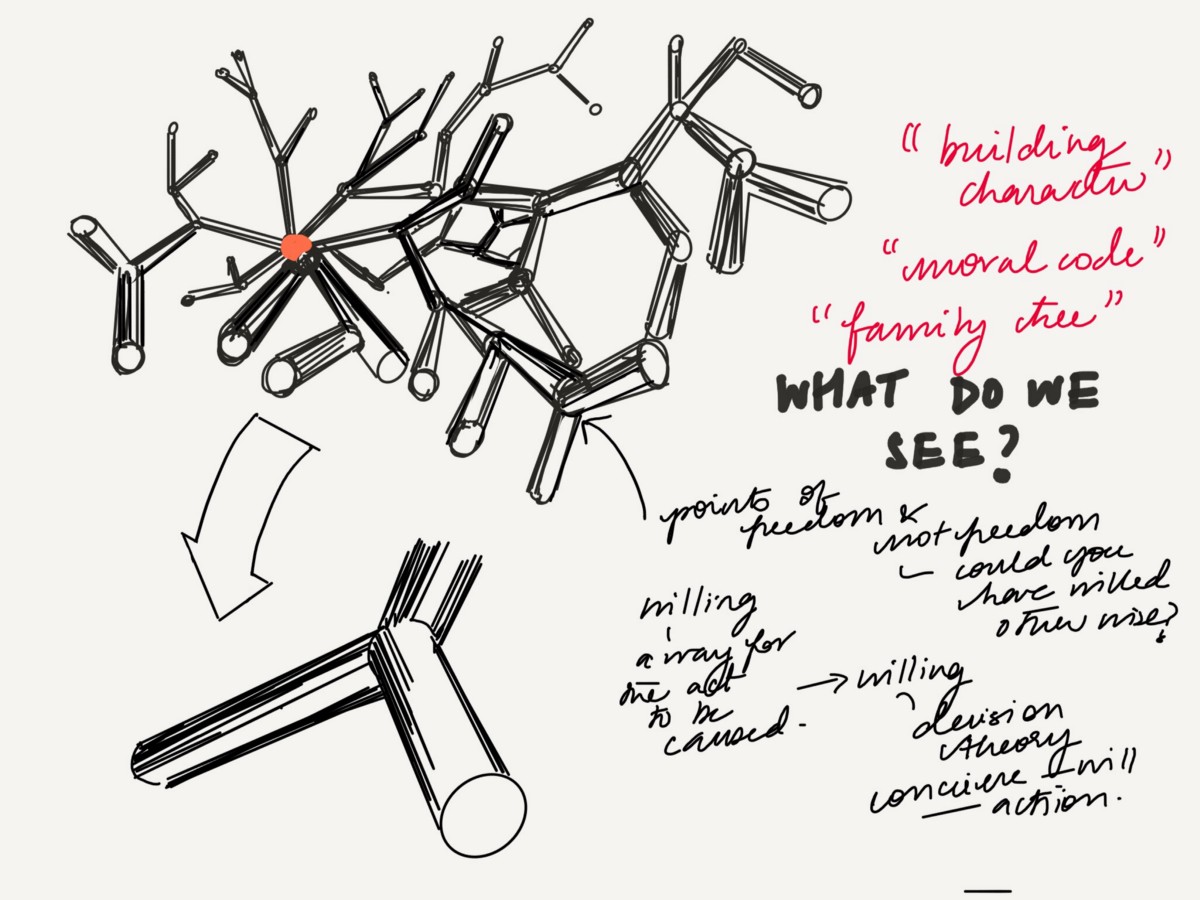 "building
character"
"moral code"
"family tree"
WHAT DO WE
SEE?
points of
freedom &
not freedom
could you
have willed
otherwise?
willing
a way for
the act
to be
caused.
→ willing
decision
theory
will
action.